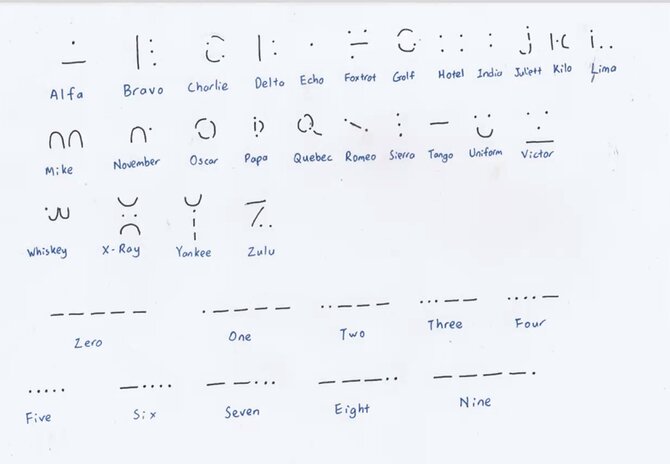 Alfa Bravo Charlie Delta Echo Foxtrot Golf Hotel India Juliett Kilo Lima
Mike November Oscar Papa Quebec Romeo Sierra Tango Uniform Victor
Whiskey X-Ray Yankee Zulu
Zero One Two Three Four
Five Six Seven Eight Nine